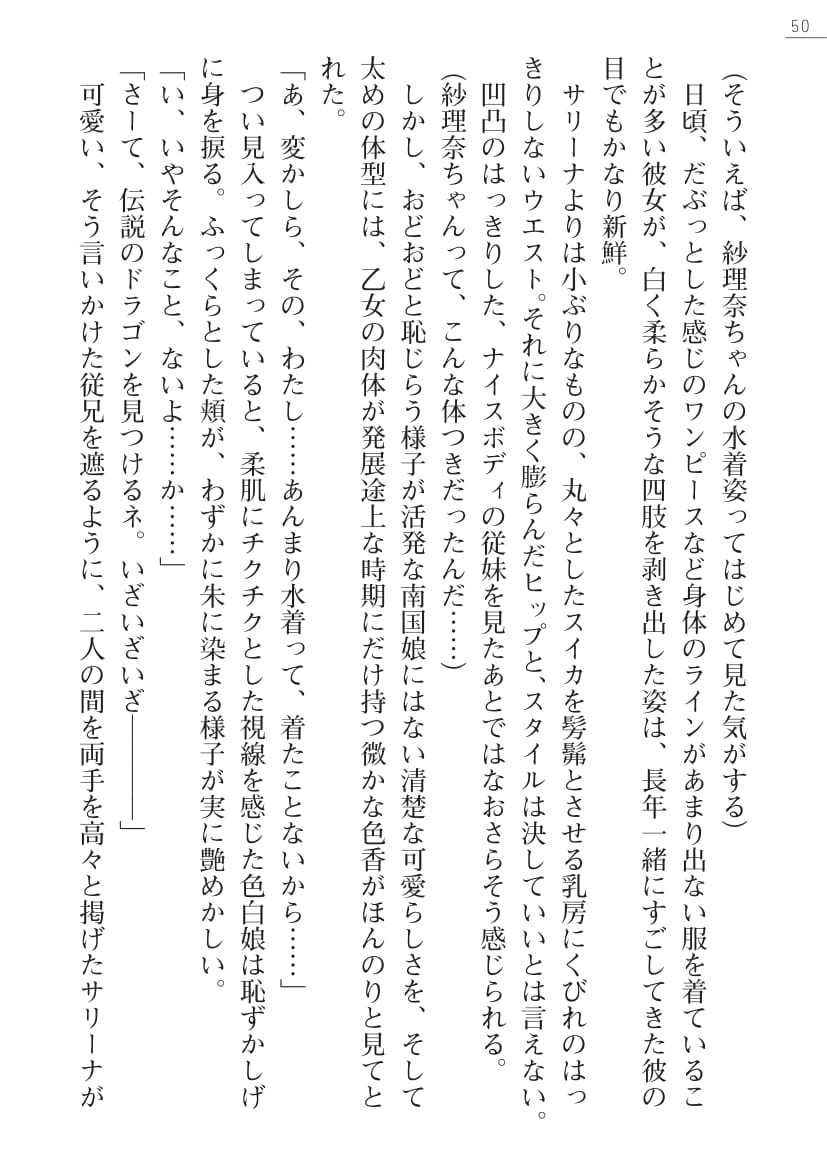 50
(そういえば、紗理奈ちゃんの水着姿ってはじめて見た気がする)
日頃、だぶっとした感じのワンピースなど身体のラインがあまり出ない服を着ているこ
とが多い彼女が、白く柔らかそうな四肢を剥き出した姿は、長年一緒にすごしてきた彼の
目でもかなり新鮮。
サリーナよりは小ぶりなものの、丸々としたスイカを髣髴とさせる乳房にくびれのはっ
きりしないウエスト。それに大きく膨らんだヒップと、スタイルは決していいとは言えない。
凹凸のはっきりした、ナイスボディの従妹を見たあとではなおさらそう感じられる。
(紗理奈ちゃんって、こんな体つきだったんだ……)
しかし、おどおどと恥じらう様子が活発な南国娘にはない清楚な可愛らしさを、そして
太めの体型には、乙女の肉体が発展途上な時期にだけ持つ微かな色香がほんのりと見てと
れた。
「あ、変かしら、その、わたし……あんまり水着って、着たことないから……」
つい見入ってしまっていると、柔肌にチクチクとした視線を感じた色白娘は恥ずかしげ
に身を捩る。ふっくらとした頬が、わずかに朱に染まる様子が実に艶めかしい。
「い、いやそんなこと、ないよ……か……」
「さーて、伝説のドラゴンを見つけるネ。いざいざいざ――――」
可愛い、そう言いかけた従兄を遮るように、二人の間を両手を高々と掲げたサリーナが